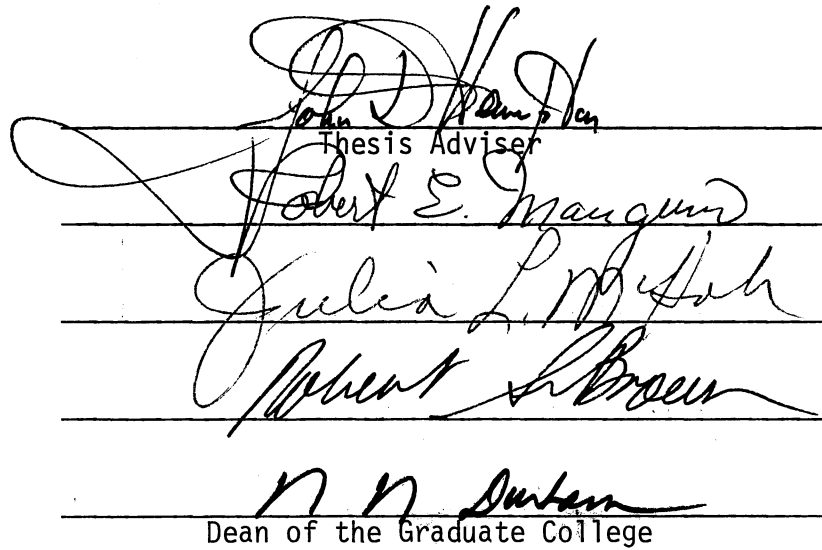 John D. Hampton
Thesis Adviser
Robert E. Mangum
Julia L. McHale
Robert S. Brown
N N Durham
Dean of the Graduate College